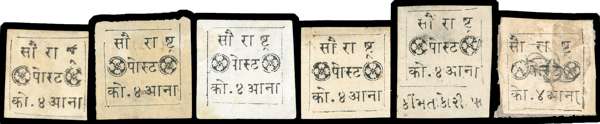 सौ रा ष्ट्र
पोस्ट
को.४ आना
सौ रा ष्ट्र
पोस्ट
को.४ आना
सौ रा ष्ट्र
पोस्ट
को.४ आना
सौ रा ष्ट्र
पोस्ट
को.४ आना
सौ रा ष्ट्र
पोस्ट
को.४ आना
કીંમત કોરી
सौ रा ष्ट्र
को.४ आना